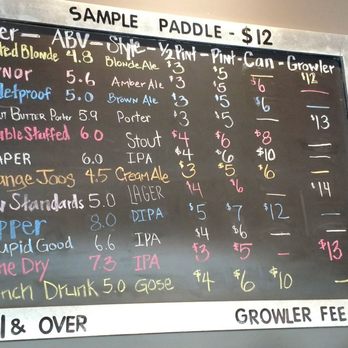 SAMPLE PADDLE - $12
er - ABV - Style - ½ Pint - Pint - Can - Growler
ted Blonde 4.8 Blonde Ale $3 $5 — $12
nor 5.6 Amber Ale $3 $5 $6 —
letproof 5.0 Brown Ale $3 $5 — —
ut Butter Porter 5.9 Porter $3 $5 — $13
uble Stuffed 6.0 Stout $4 $6 $8 —
aper 6.0 IPA $4 $6 $10 —
ange Joos 4.5 Cream Ale $3 $5 — —
w Standards 5.0 LAGER $4 $6 — $14
pper 8.0 DIPA $5 $7 $12 —
upid Good 6.6 IPA $4 $6 — —
ne Dry 7.3 IPA $3 $5 — $13
nch Drunk 5.0 Gose $4 $6 $10 —
1 & OVER GROWLER FEE